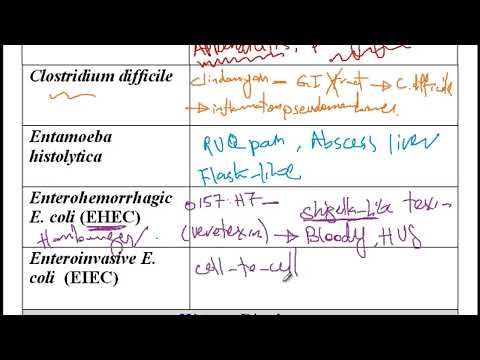 Clostridium difficile
Clindamycin - GI tract → C. difficile
→ inflammation pseudomembranes
Entamoeba
histolytica
RUQ pain, Abscess liver
Flask-like
Enterohemorrhagic
E. coli (EHEC)
Hamburger.
O157:H7 - Shigella-like toxin
(verotoxin) → Bloody, HUS
Enteroinvasive E.
coli (EIEC)
cell-to-cell